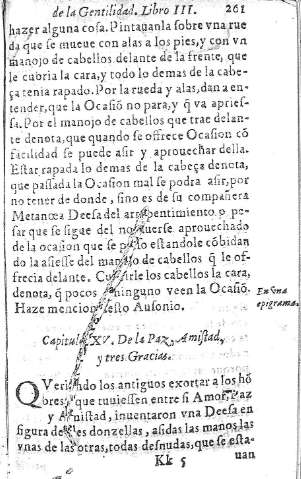 de la Gentilidad. Libro III. 261
hazer alguna cosa. Pintauanla sobre vna rue
da que se mueue con alas a los pies, y con vn
manojo de cabellos delante de la frente, que
le cubria la cara, y todo lo demas de la cabe-
ça tenia rapado. Por la rueda y alas, dan a en-
tender, que la Ocasiõ no para, y q̃ va apries-
sa. Por el manojo de cabellos que trae delan-
te denota, que quando se offrece Ocasion cõ
facilidad se puede asir y aprouechar della.
Estar rapada lo demas de la cabeça denota,
que passada la Ocasion mal se podra asir, por
no tener de donde, sino es de su compañera
Metanœa Deesa del arrepentimiento o pe-
sar que se sigue del no auerse aprouechado
de la ocasion que se passo estandole cõbidan
do la asiesse del manojo de cabellos q̃ le of-
frecia delante. Cubrirle los cabellos la cara,
denota, q̃ pocos o ninguno veen la Ocasiõ.
Haze mencion desto Ausonio.
En vna
epigrama.
Capitulo XV. De la Paz, Amistad,
y tres Gracias.
QVeriendo los antiguos exortar a los hõ
bres, que tuuiessen entre si Amor, Paz
y Amistad, inuentaron vna Deesa en
figura de tres donzellas, asidas las manos las
vnas de las otras, todas desnudas, que se esta-
Kk 5 uan